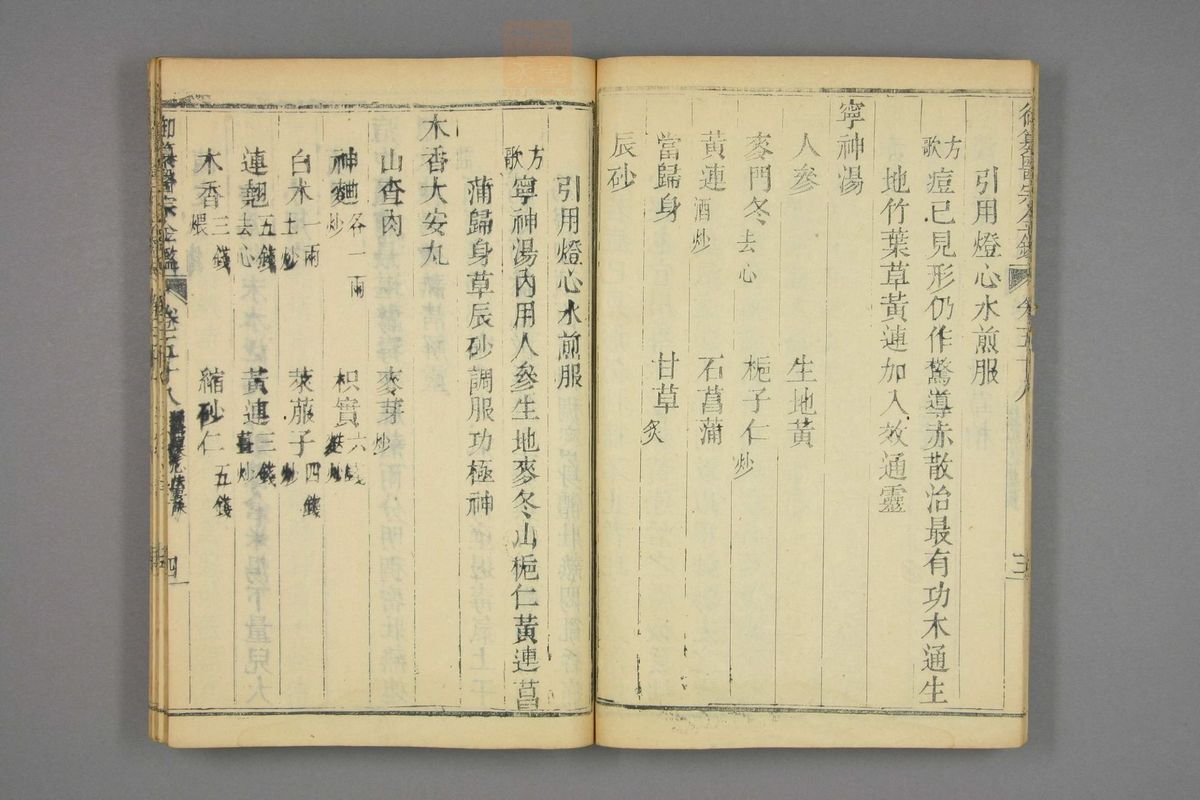 御纂醫宗金鑑 卷五十八 三
引用燈心水煎服
方歌 痘已見形仍作驚導赤散治最有功木通生
地竹葉草黃連加入效通靈
寧神湯
人參 生地黃
麥門冬去心 梔子仁炒
黃連酒炒 石菖蒲
當歸身 甘草炙
辰砂
引用燈心水煎服
方歌 寧神湯內用人參生地麥冬山梔仁黃連菖
蒲歸身草辰砂調服功極神
木香大安丸
山查肉 麥芽炒
神麯炒各一兩 枳實麩炒六錢
白朮土炒一兩 萊菔子炒四錢
連翹去心五錢 黃連薑炒三錢
木香煨三錢 縮砂仁五錢
御纂醫宗金鑑 卷五十八 四